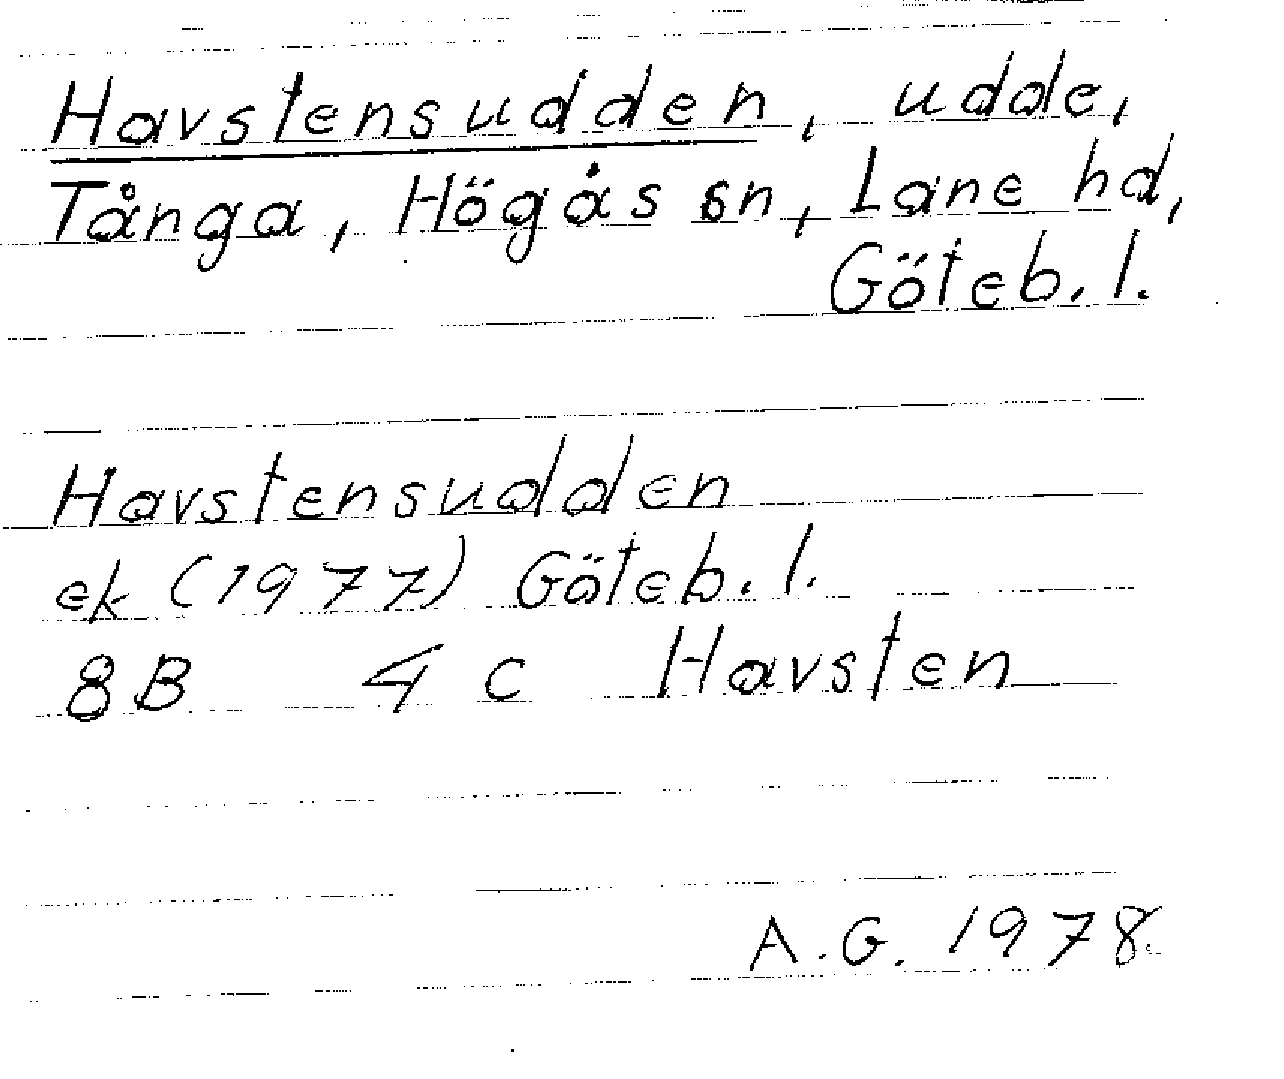 Havstensudden, udde,
Tånga, Högås sn, Lane hd,
Göteb. l.
Havstensudden
ek (1977) Göteb. l.
8B 4c Havsten
A.G. 1978